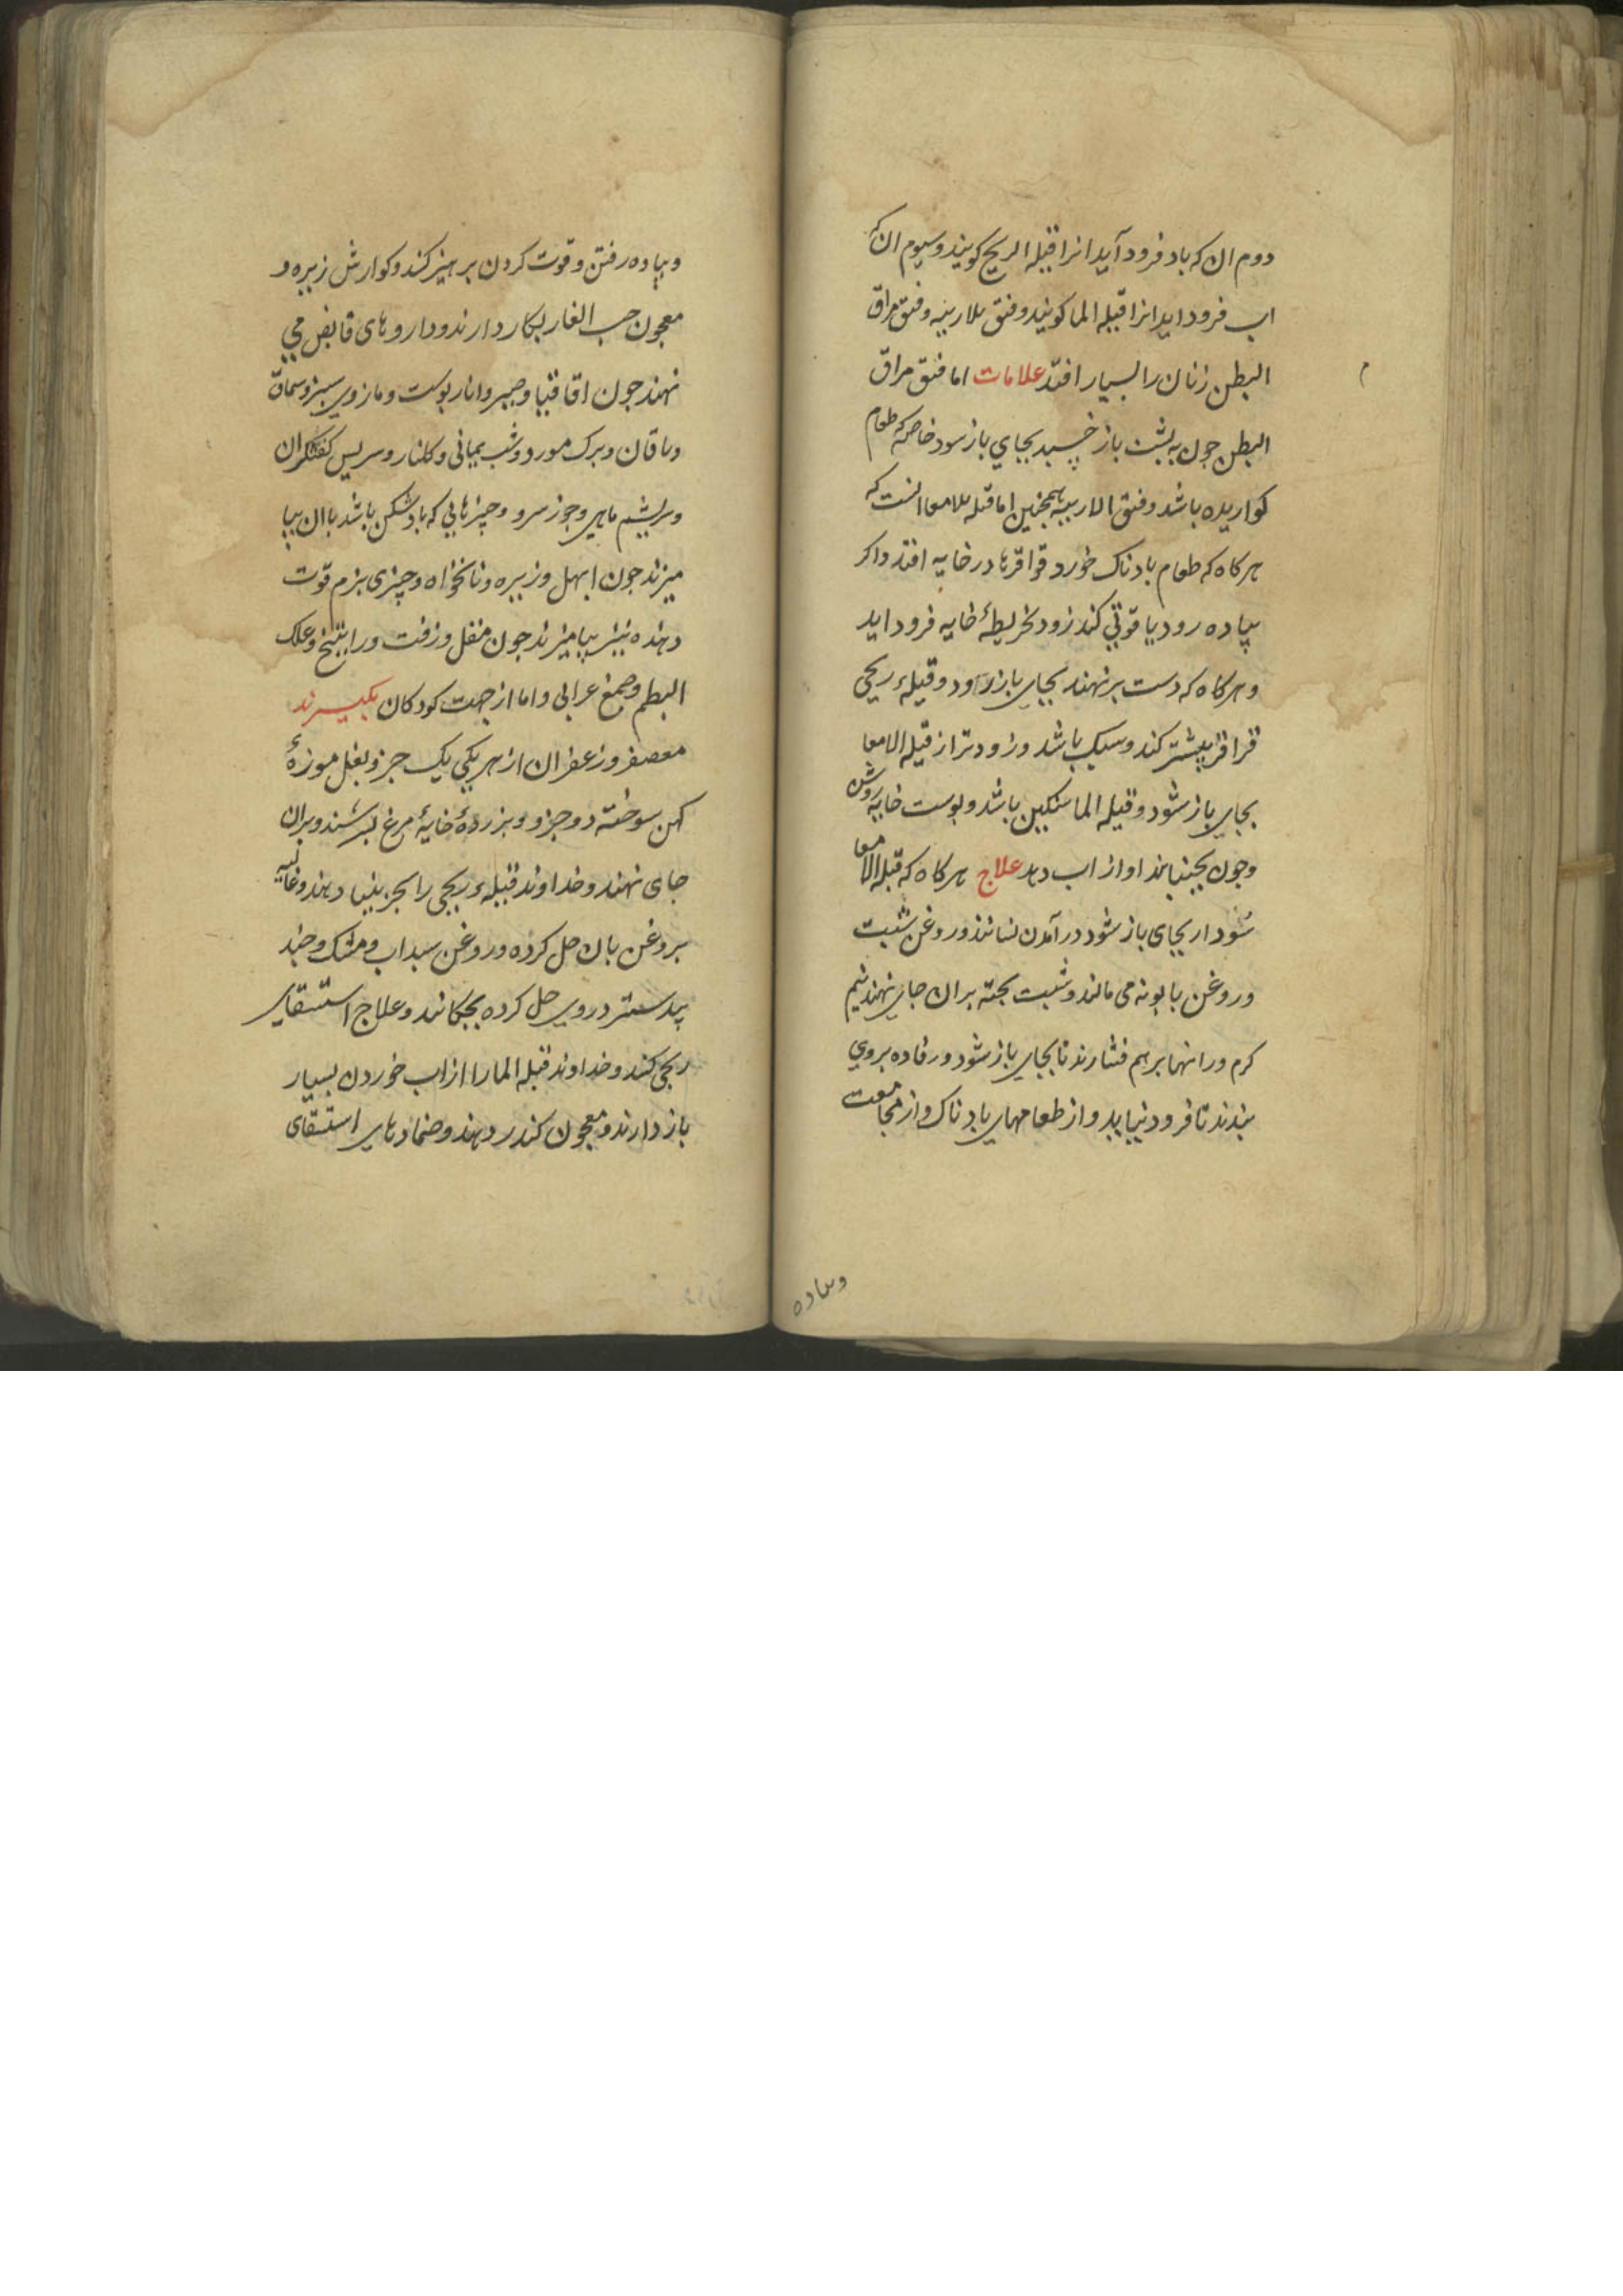 دوم ان که باد فرود آید انرا قیله الریح کویند و سیوم ان که
اب فرود اید انرا قیله الما کویند و فتق الاربیه و فتق مراق
البطن زنان را بسیار افتد علامات اما فتق مراق
البطن جون به پشت باز خسپد بجای باز سود خاصه که طعام
کواریده باشد و فتق الاربیه همجنین اما قیله الامعا انست که
هر کاه که طعام بادناک خورد قراقرها در خایه افتد و اکر
پیاده رود یا قوتی کند زود بخریطهٔ خایه فرود اید
و هر کاه که دست بر نهند بجای باز رود و قیلهٔ ریحی
قراقر بیشتر کند و سبک باشد و زودتر از قیله الامعا
بجای باز شود و قیله الما سنکین باشد و پوست خایه روشن
و جون بجنبانند اواز اب دهد علاج هر کاه که قیله الامعا
شود ار بجای باز شود در آمدن نسانند و روغن شبت
و روغن بابونه می مالند و شبت پخته بران جای نهند نیم
کرم و رانها بر هم فشارند تا بجای باز شود و رفاده بروی
بندند تا فرود نیاید و از طعامهای بادناک و از مجامعت
وپیاده
و پیاده رفتن و قوت کردن پرهیز کند و کوارش زیره و
معجون حب الغار بکار دارند و داروهای قابض می
نهند جون اقاقیا و صبر و انار پوست و مازوی سبز و سماق
و برک مورد و شب یمانی و کلنار و سریس کفشکران
و سریشم ماهی و جوز سرو و جیزهایی که بادشکن باشد با ان بیا
میزند جون ابهل و زیره و نانخواه و چیزی بزم قوت
دهنده نیز بیامیزند جون مقل و زفت و راتینج و علک
البطم و صمغ عرابی و اما از جهت کودکان بکیرند
معصفر و زعفران از هر یکی یک جزو نعل موزهٔ
کهن سوخته دو جزو و بزردهٔ خایهٔ مرغ بسرشند و بران
جای نهند و خداوند قیلهٔ ریحی را بجزینیا دهند و غالیه
بروغن بان حل کرده و روغن سداب و مشک و جند
بیدستر در وی حل کرده بجکانند و علاج استسقای
ریحی کنند و خداوند قیله الما را از اب خوردن بسیار
باز دارند و معجون کندر دهند و ضمادهای استسقای